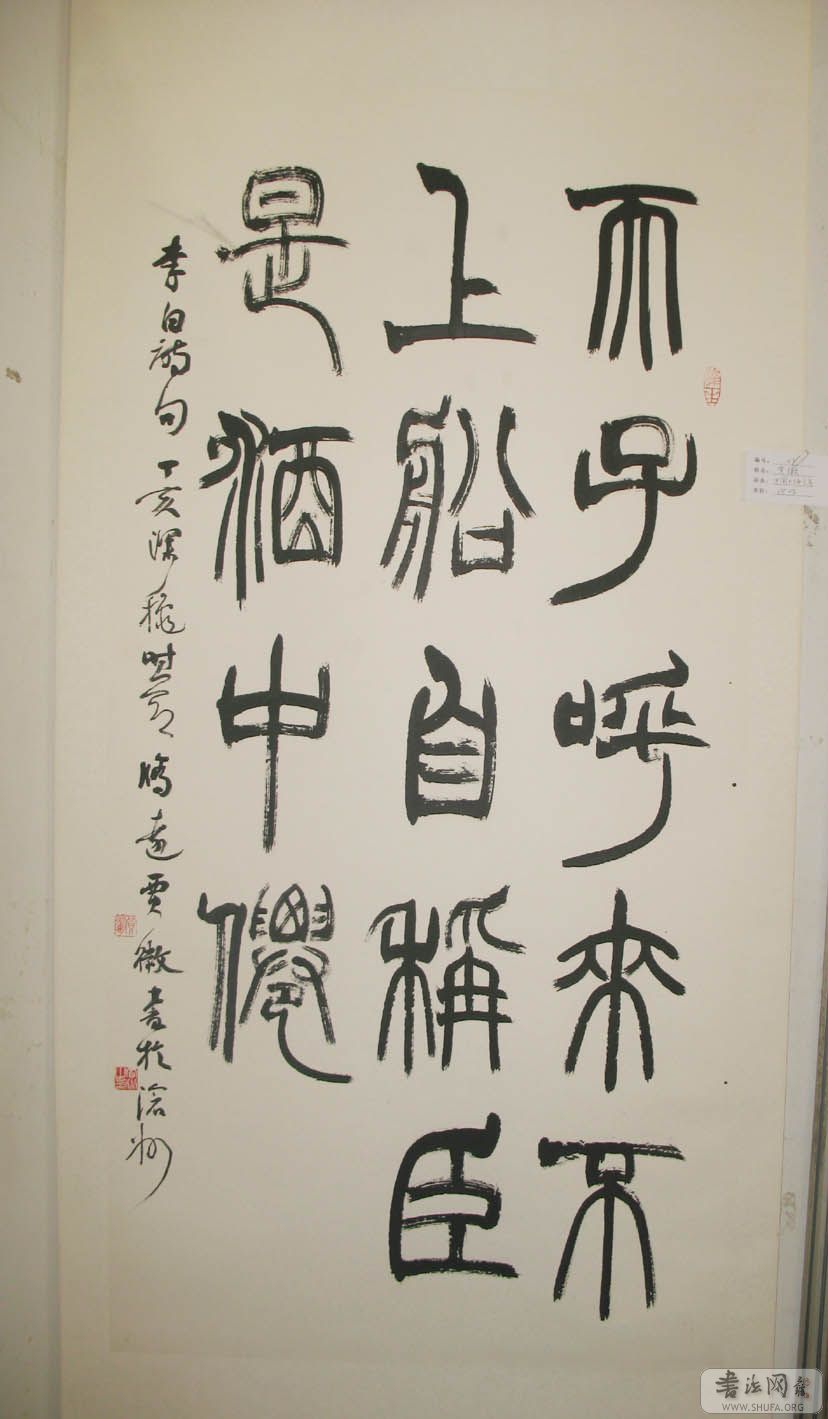 天子呼來不
上船自稱臣
是酒中僊
李白詩句 丁亥深穐時節 遠賈書於滄州
编号：
姓名：
书法网
WWW.SHUFA.ORG